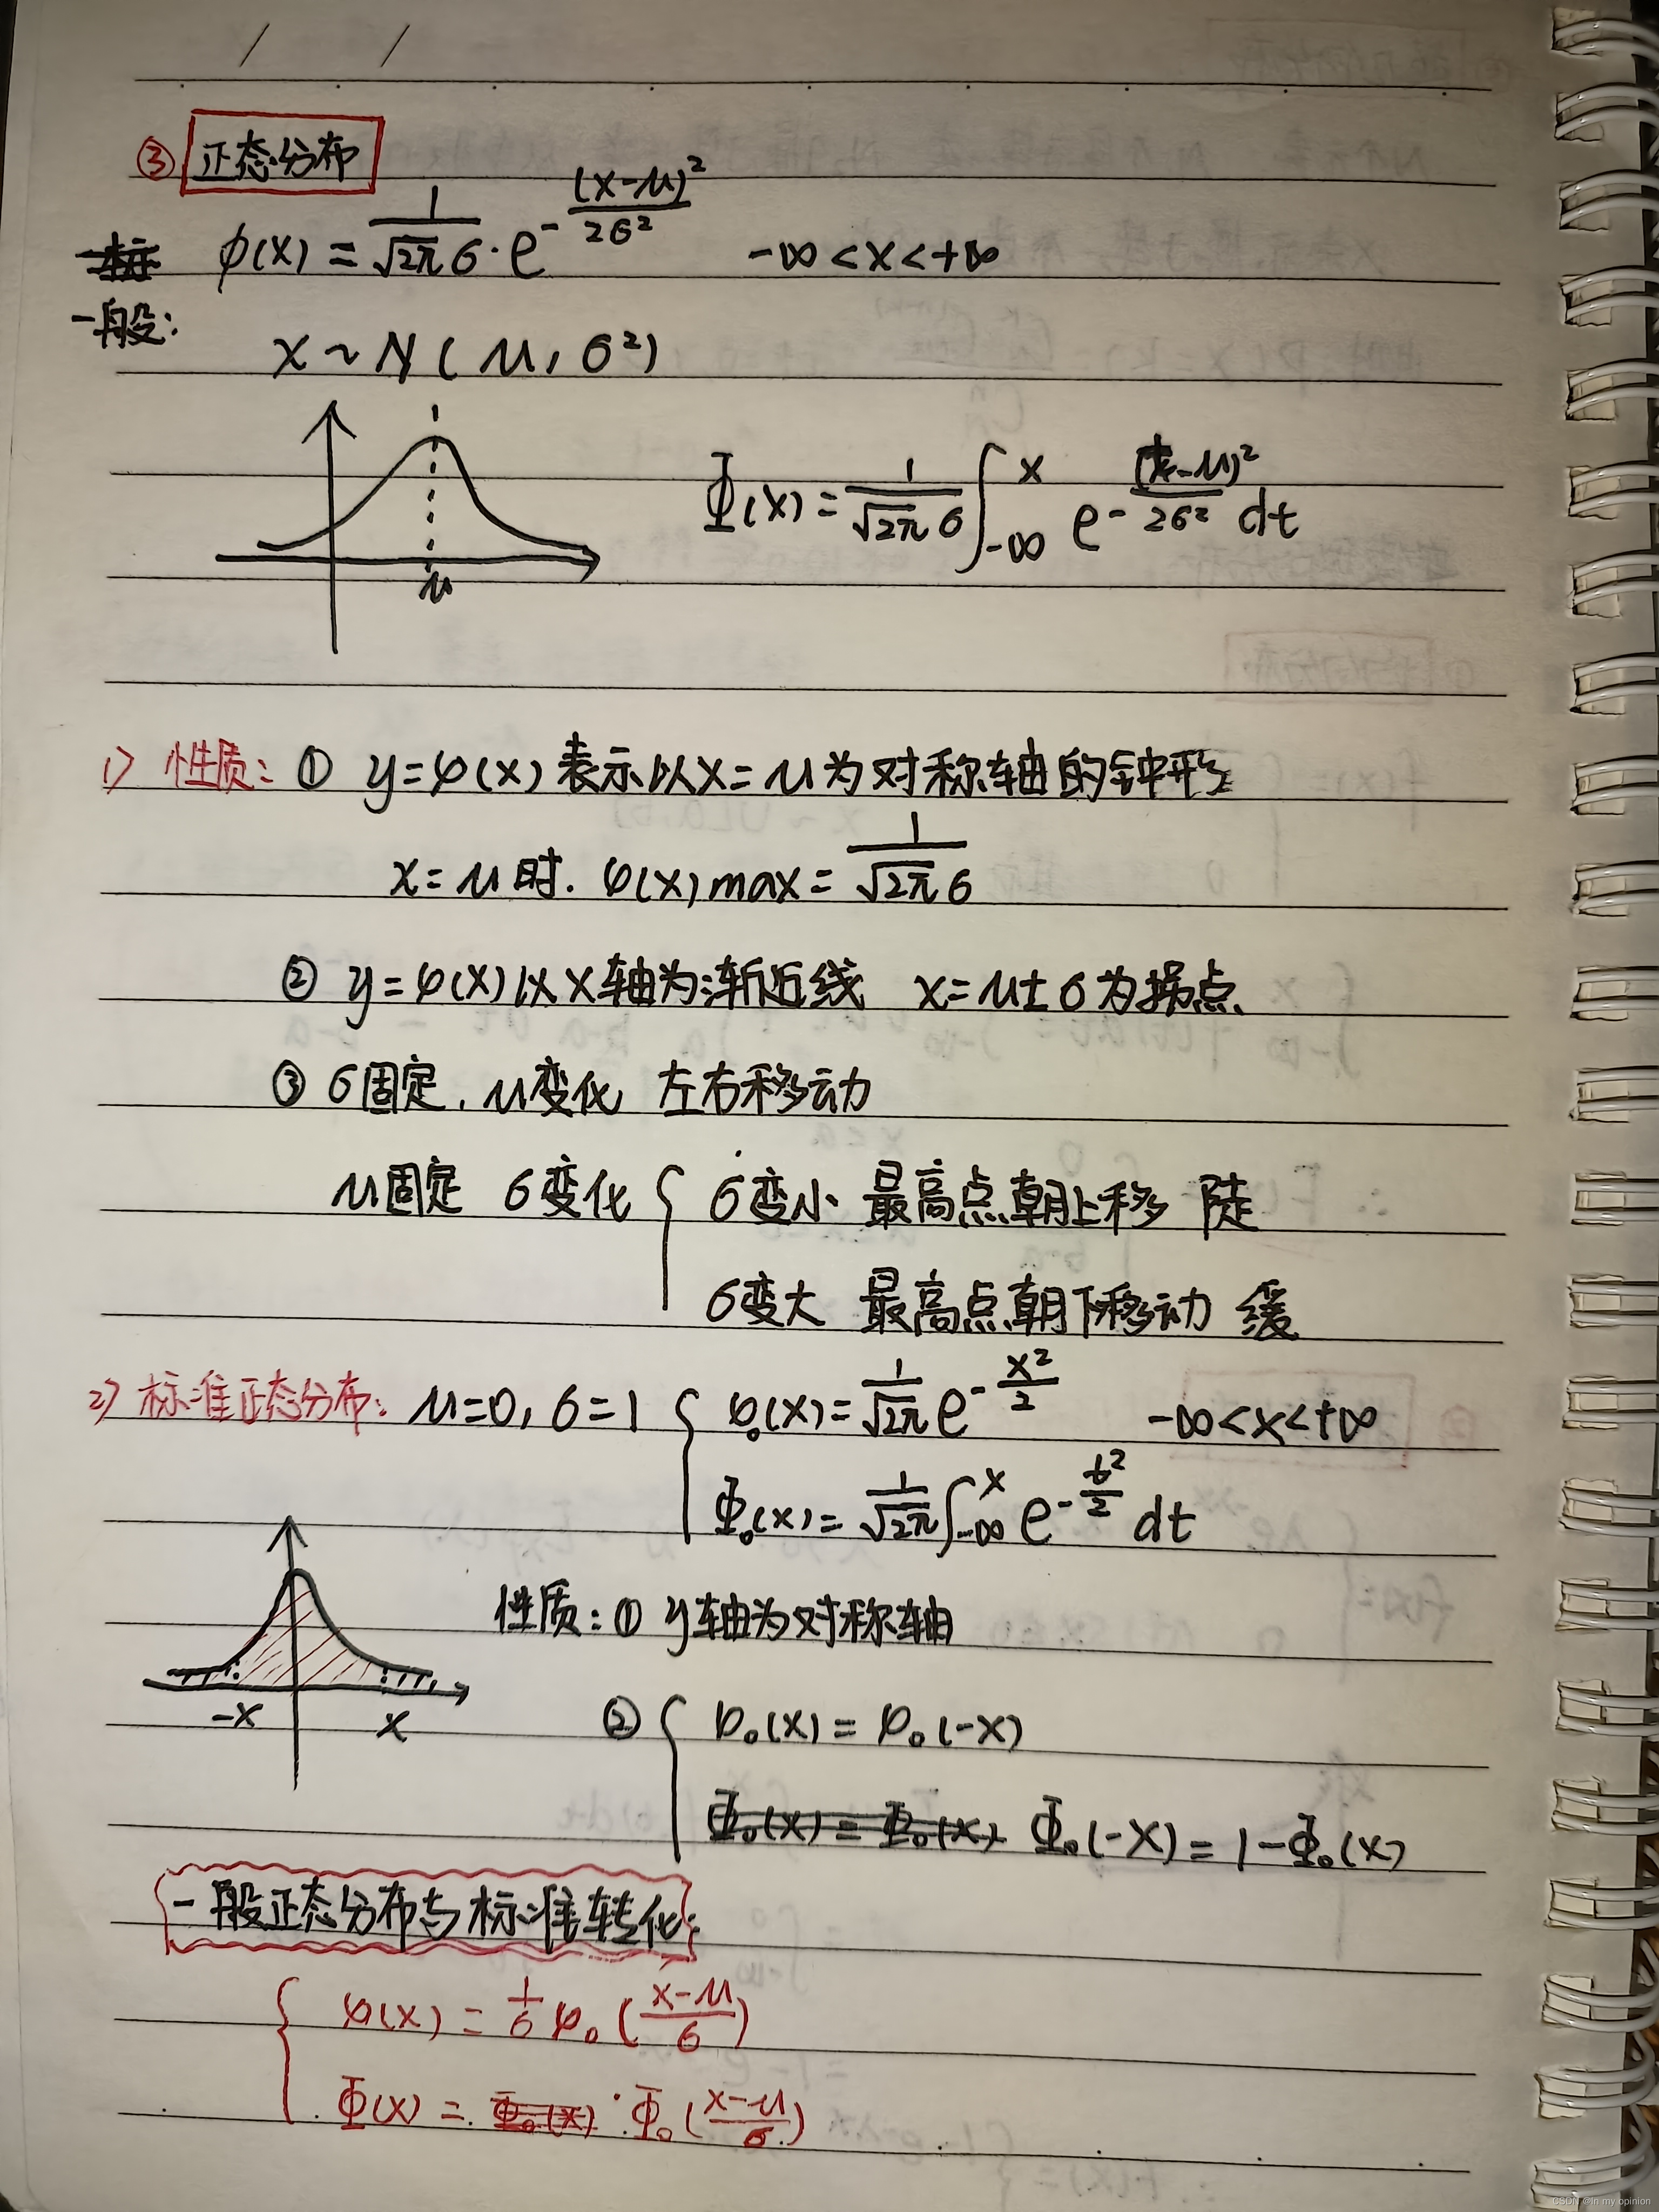 ③ 正态分布
φ(x) = 1/(√2π σ) · e^(-(x-μ)²/(2σ²))   -∞<x<+∞
一般:
x ~ N(μ, σ²)
Φ(x) = 1/(√2π σ) ∫_{-∞}^{x} e^(-(t-μ)²/(2σ²)) dt
μ
1) 性质: ① y=φ(x)表示以x=μ为对称轴的钟形
x=μ时. φ(x)max = 1/(√2π σ)
② y=φ(x)以x轴为渐近线 x=μ±σ为拐点.
③ σ固定, μ变化 左右移动
μ固定 σ变化 { σ变小 最高点朝上移 陡
σ变大 最高点朝下移动 缓
2) 标准正态分布: μ=0, σ=1 { φ₀(x) = 1/√2π e^(-x²/2)   -∞<x<+∞
Φ₀(x) = 1/√2π ∫_{-∞}^{x} e^(-t²/2) dt
性质: ① y轴为对称轴
-x   x
② { φ₀(x) = φ₀(-x)
Φ₀(x) = Φ₀(x) Φ₀(-x) = 1-Φ₀(x)
一般正态分布与标准转化:
{ φ(x) = 1/σ φ₀((x-μ)/σ)
Φ(x) = Φ₀(x) · Φ₀((x-μ)/σ)
CSDN @In my opinion